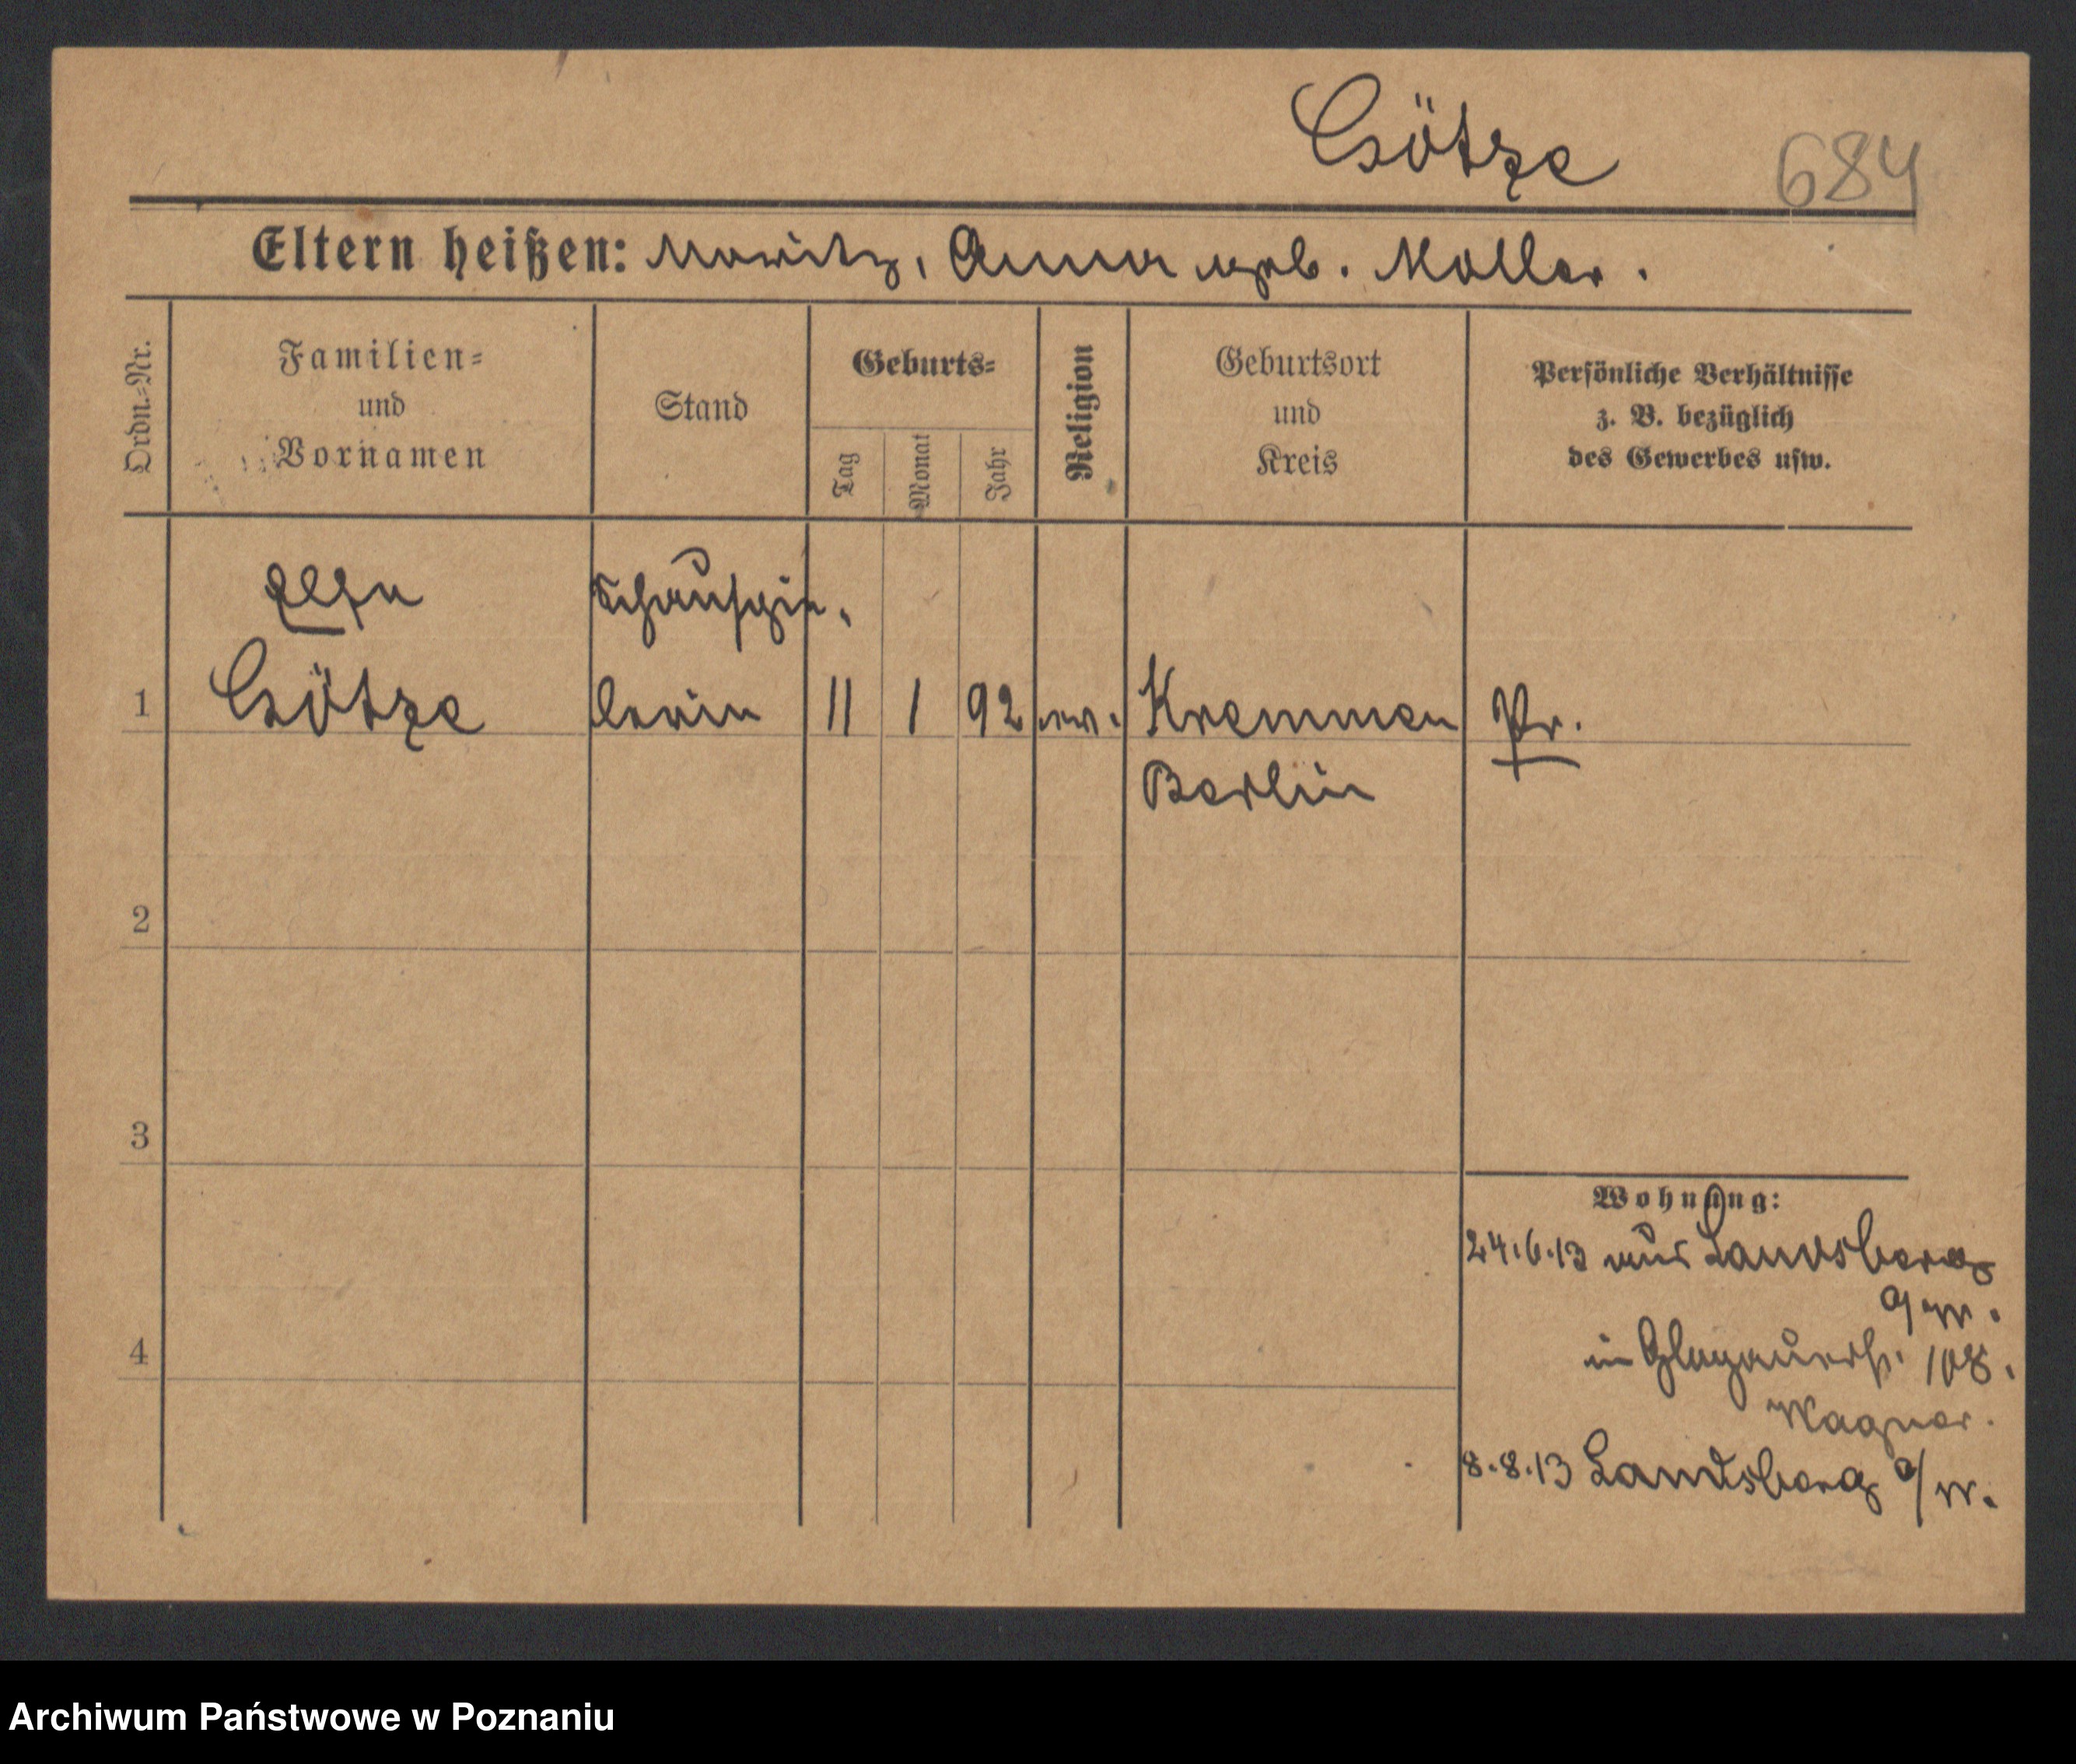 Götze 684
Eltern heißen: Moritz, Anna geb. Moller.
Ordn.-Nr.
Familien-
und
Vornamen
Stand
Geburts-
Tag
Monat
Jahr
Religion
Geburtsort
und
Kreis
Persönliche Verhältnisse
z. B. bezüglich
des Gewerbes usw.
Schauspie-
1 Götze lerin 11 1 92 ev. Kremmen Pr.
Berlin
2
3
Wohnung:
24.6.13 aus Landsberg
a/W.
4
in Glogauerstr. 108.
Wagner.
8.8.13 Landsberg a/W.
Archiwum Państwowe w Poznaniu